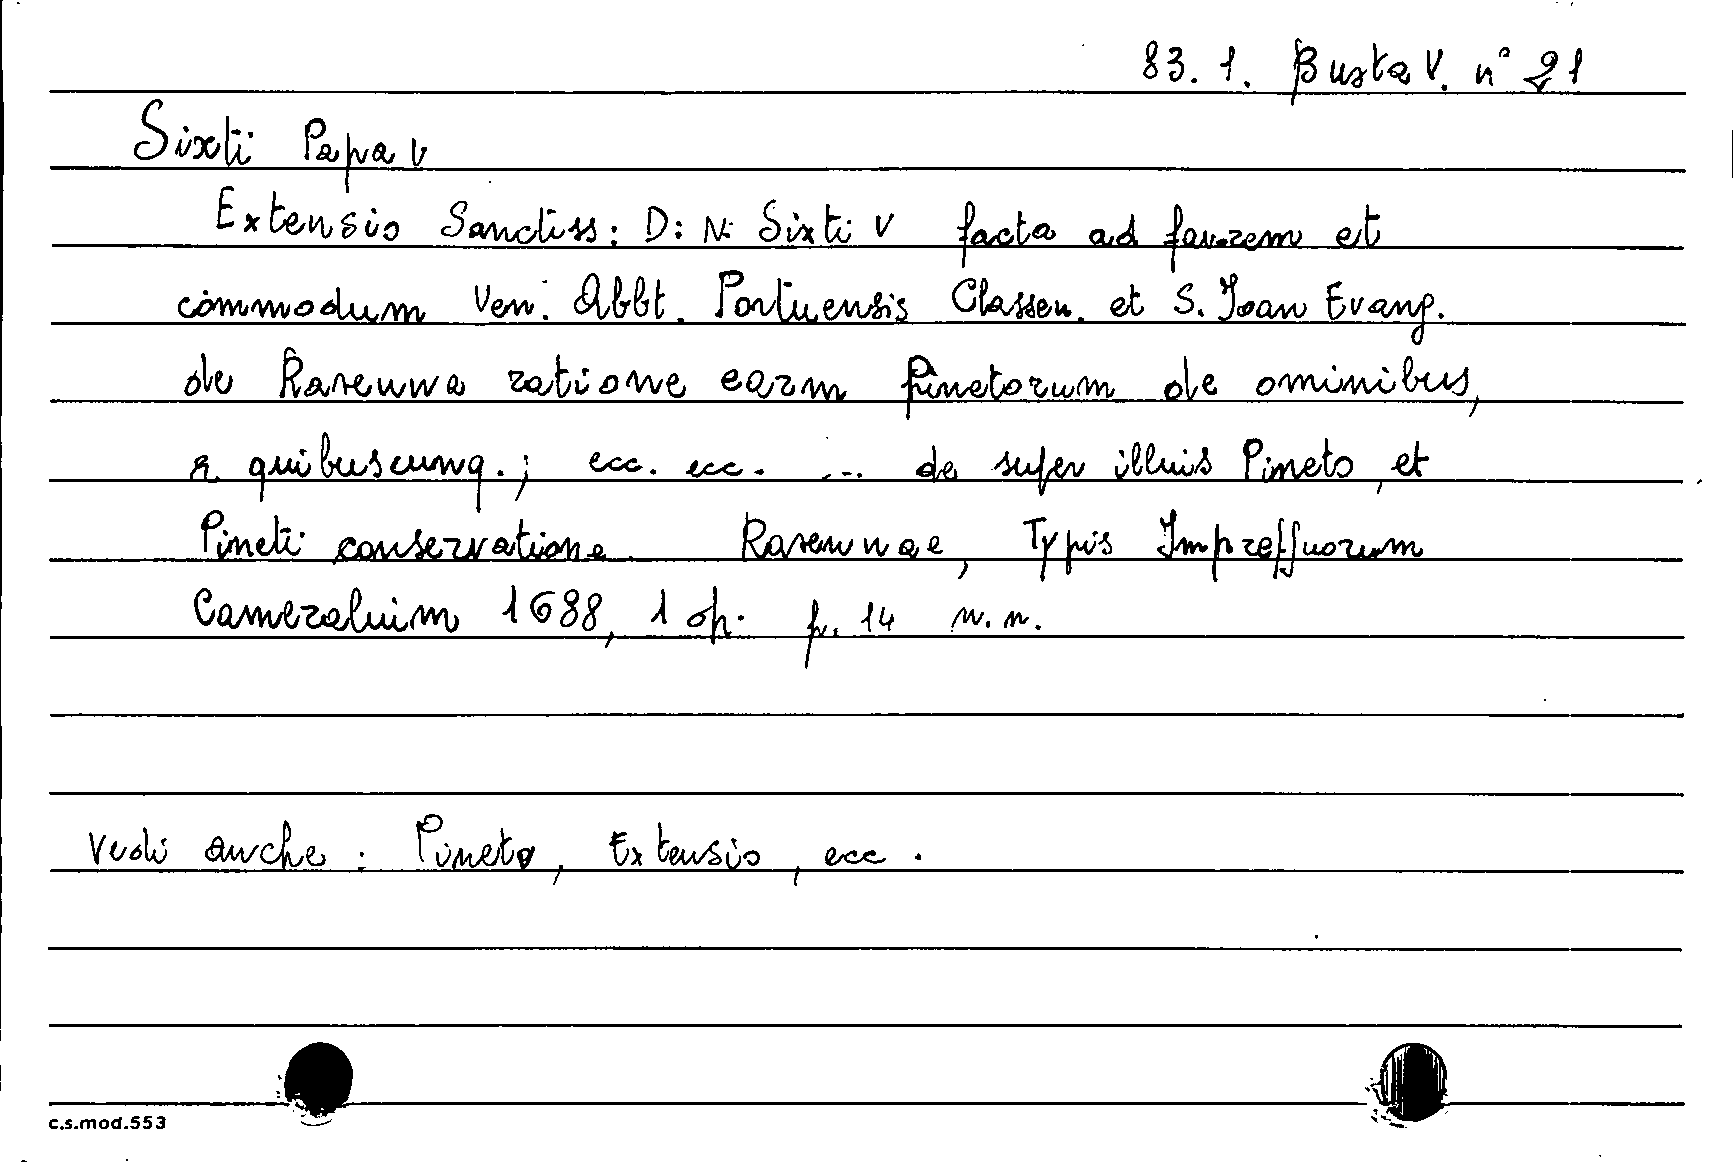 83. 1. Busta V. n° 21
Sixti Papa V
Extensio Sanctiss: D: N: Sixti V facta ad favorem et
commodum Ven. Abbt. Portuensis Classen. et S. Joan Evang.
de Ravenna ratione earm Pinetorum de ominibus,
a quibuscunq.; ecc. ecc. ... de super illius Pineto, et
Pineti conservatione. Ravennae, Typis Impressuorum
Cameraluim 1688, 1 op. p. 14 n. n.
Vedi anche: Pineto, Extensio, ecc.
c.s.mod.553